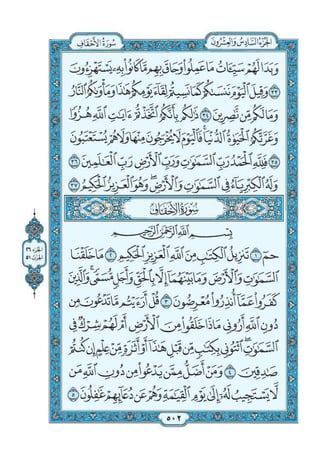 سُورَةُ الأَحْقَافِ
الجُزْءُ السَّادِسُ وَالعِشْرُونَ
وَبَدَا لَهُمْ سَيِّـَٔاتُ مَا عَمِلُوا۟ وَحَاقَ بِهِم مَّا كَانُوا۟ بِهِۦ يَسْتَهْزِءُونَ
﴿٣٣﴾ وَقِيلَ ٱلْيَوْمَ نَنسَىٰكُمْ كَمَا نَسِيتُمْ لِقَآءَ يَوْمِكُمْ هَـٰذَا وَمَأْوَىٰكُمُ ٱلنَّارُ
وَمَا لَكُم مِّن نَّـٰصِرِينَ ﴿٣٤﴾ ذَٰلِكُم بِأَنَّكُمُ ٱتَّخَذْتُمْ ءَايَـٰتِ ٱللَّهِ هُزُوًا
وَغَرَّتْكُمُ ٱلْحَيَوٰةُ ٱلدُّنْيَا فَٱلْيَوْمَ لَا يُخْرَجُونَ مِنْهَا وَلَا هُمْ يُسْتَعْتَبُونَ
﴿٣٥﴾ فَلِلَّهِ ٱلْحَمْدُ رَبِّ ٱلسَّمَـٰوَٰتِ وَرَبِّ ٱلْأَرْضِ رَبِّ ٱلْعَـٰلَمِينَ ﴿٣٦﴾
وَلَهُ ٱلْكِبْرِيَآءُ فِى ٱلسَّمَـٰوَٰتِ وَٱلْأَرْضِ وَهُوَ ٱلْعَزِيزُ ٱلْحَكِيمُ ﴿٣٧﴾
سُورَةُ الأَحْقَافِ
بِسْمِ ٱللَّهِ ٱلرَّحْمَـٰنِ ٱلرَّحِيمِ
حمٓ ﴿١﴾ تَنزِيلُ ٱلْكِتَـٰبِ مِنَ ٱللَّهِ ٱلْعَزِيزِ ٱلْحَكِيمِ ﴿٢﴾ مَا خَلَقْنَا
ٱلسَّمَـٰوَٰتِ وَٱلْأَرْضَ وَمَا بَيْنَهُمَآ إِلَّا بِٱلْحَقِّ وَأَجَلٍ مُّسَمًّى وَٱلَّذِينَ
كَفَرُوا۟ عَمَّآ أُنذِرُوا۟ مُعْرِضُونَ ﴿٣﴾ قُلْ أَرَءَيْتُم مَّا تَدْعُونَ مِن
دُونِ ٱللَّهِ أَرُونِى مَاذَا خَلَقُوا۟ مِنَ ٱلْأَرْضِ أَمْ لَهُمْ شِرْكٌ فِى
ٱلسَّمَـٰوَٰتِ ٱئْتُونِى بِكِتَـٰبٍ مِّن قَبْلِ هَـٰذَآ أَوْ أَثَـٰرَةٍ مِّنْ عِلْمٍ إِن كُنتُمْ
صَـٰدِقِينَ ﴿٤﴾ وَمَنْ أَضَلُّ مِمَّن يَدْعُوا۟ مِن دُونِ ٱللَّهِ مَن
لَّا يَسْتَجِيبُ لَهُۥٓ إِلَىٰ يَوْمِ ٱلْقِيَـٰمَةِ وَهُمْ عَن دُعَآئِهِمْ غَـٰفِلُونَ ﴿٥﴾
الجزء ٢٦
الحزب ٥١
٥٠٢